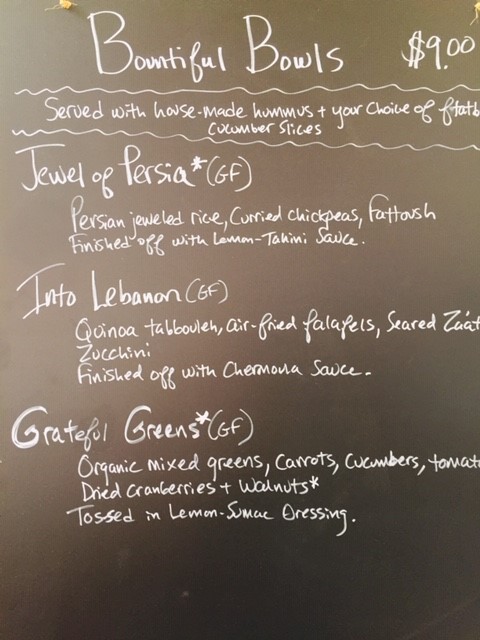 Bountiful Bowls $9.00
Served with house-made hummus + your choice of flatb
cucumber slices
Jewel of Persia* (GF)
Persian jeweled rice, Curried chickpeas, Fattoush
Finished off with Lemon-Tahini Sauce.
Into Lebanon (GF)
Quinoa tabbouleh, air-fried falafels, Seared Za'at
Zucchini
Finished off with Chermoula Sauce.
Grateful Greens* (GF)
Organic mixed greens, Carrots, Cucumbers, tomato
Dried Cranberries + Walnuts*
Tossed in Lemon-Sumac Dressing.